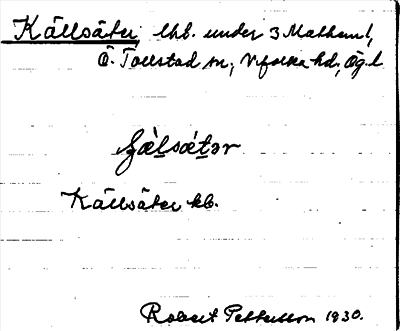 Källsäter, lht. under 3 Mathem!,
Ö. Tollstad sn; Vifolka hd, Ög. l.
Källsäter kb.
Robert Pettersson 1930.